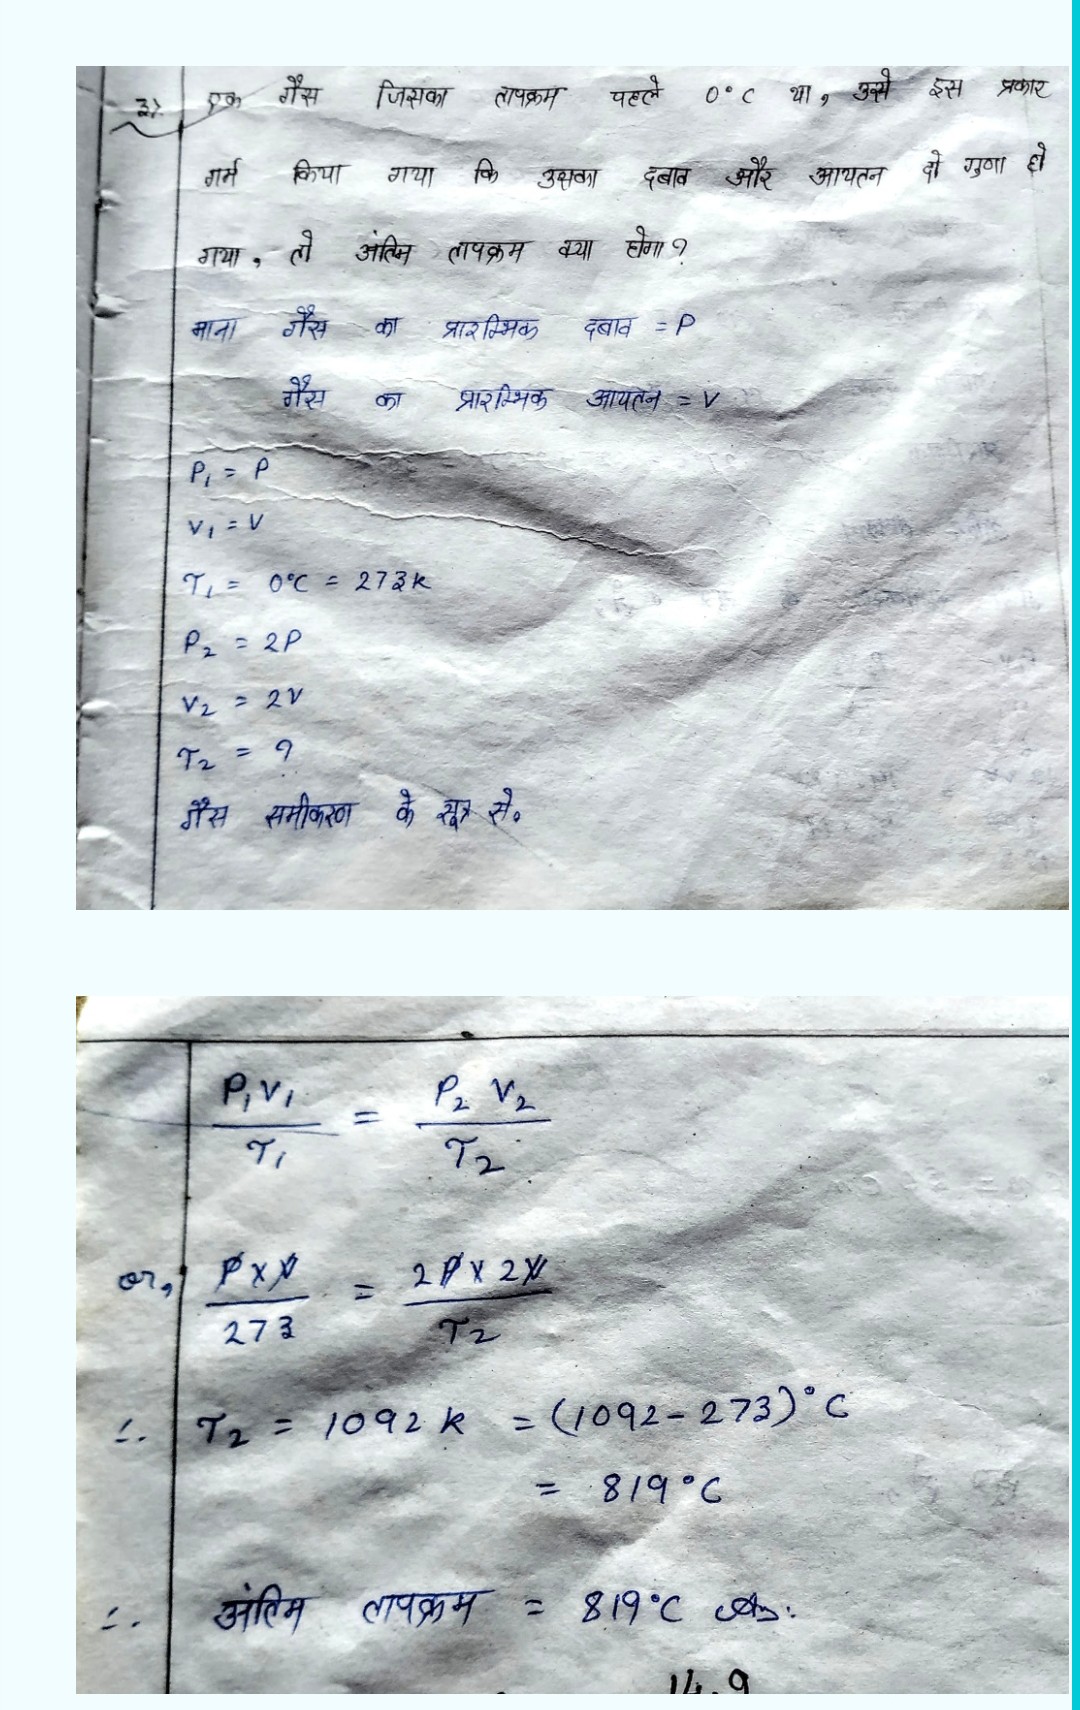 3). एक गैस जिसका तापक्रम पहले 0°C था, उसे इस प्रकार
गर्म किया गया कि उसका दबाव और आयतन दो गुणा हो
गया, तो अंतिम तापक्रम क्या होगा?
माना गैस का प्रारम्भिक दबाव = P
गैस का प्रारम्भिक आयतन = V
P₁ = P
V₁ = V
T₁ = 0°C = 273K
P₂ = 2P
V₂ = 2V
T₂ = ?
गैस समीकरण के सूत्र से。
P₁V₁ / T₁ = P₂ V₂ / T₂
or, P x V / 273 = 2P x 2V / T₂
∴ T₂ = 1092 K = (1092-273)°C
= 819°C
∴ अंतिम तापक्रम = 819°C Ans.
14.9